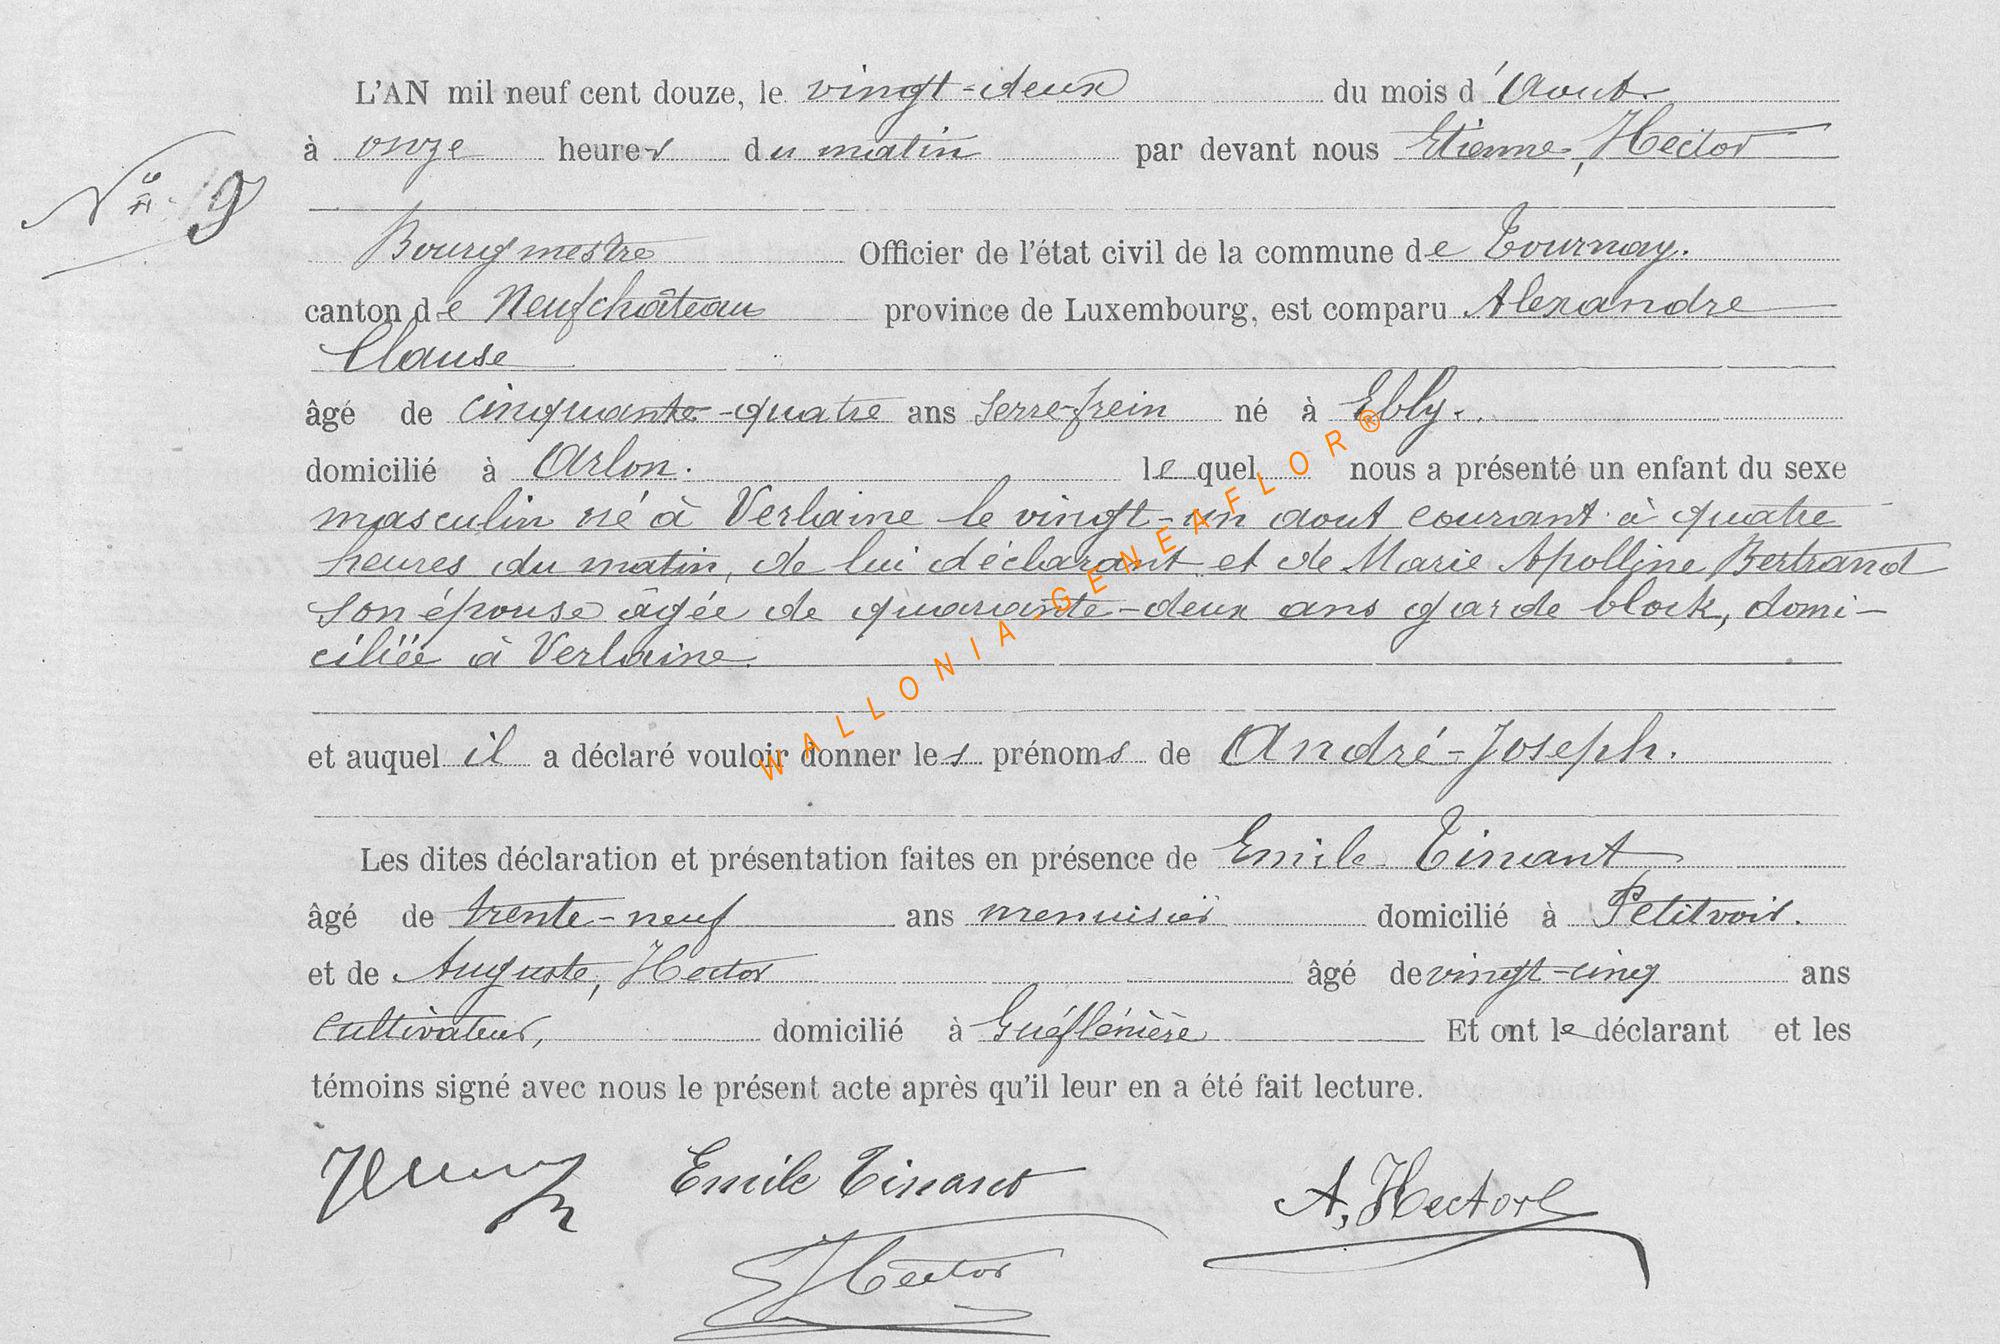 L'AN mil neuf cent douze, le vingt-deux du mois d'Aout
à onze heures du matin par devant nous Etienne, Hector
N° 9
Bourgmestre Officier de l'état civil de la commune de Tournay.
canton de Neufchâteau province de Luxembourg, est comparu Alexandre
Clause
âgé de cinquante-quatre ans serre-frein né à Ebly.
domicilié à Arlon. lequel nous a présenté un enfant du sexe
masculin né à Verlaine le vingt-un aout courant à quatre
heures du matin, de lui déclarant et de Marie Apolline Bertrand
son épouse âgée de quarante-deux ans garde block, domi-
ciliée à Verlaine.
WALLONIA-GENEAFLOR®
et auquel il a déclaré vouloir donner les prénoms de André-Joseph.
Les dites déclaration et présentation faites en présence de Emile Tinant
âgé de trente-neuf ans menuisier domicilié à Petitvoir.
et de Auguste, Hector âgé de vingt-cinq ans
cultivateur, domicilié à Guéflénière Et ont le déclarant et les
témoins signé avec nous le présent acte après qu'il leur en a été fait lecture.
Emile Tinant A, Hector
Hector